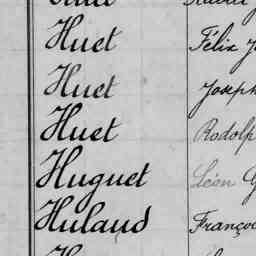 Huet Félix J
Huet Joseph
Huet Rodolp
Huguet Léon G
Hulaud Franço